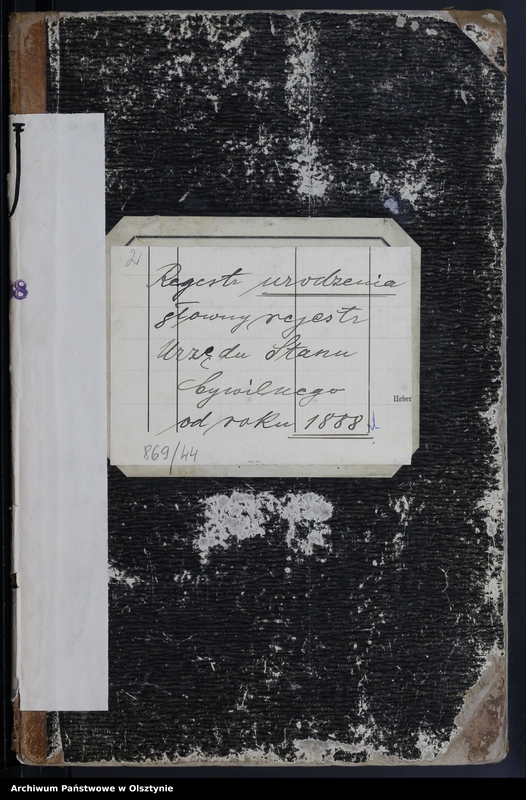 2
Regestr urodzenia
główny rejestr
Urzędu Stanu
Cywilnego
od roku 1888
Ueber
869/44
8
Archiwum Państwowe w Olsztynie